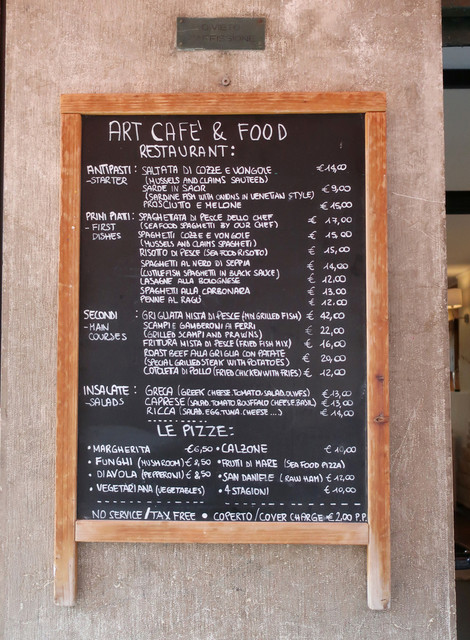 ART CAFE' & FOOD
RESTAURANT:
ANTIPASTI: SALTATA DI COZZE E VONGOLE €14,00
-STARTER (MUSSELS AND CLAIMS SAUTEED)
SARDE IN SAOR €9,00
(SARDINE FISH WITH ONIONS IN VENETIAN STYLE)
PROSCIUTTO E MELONE €15,00
PRIMI PIATI: SPAGHETATA DI PESCE DELLO CHEF € 17,00
- FIRST (SEAFOOD SPAGHETTI BY OUR CHEF)
DISHES SPAGHETTI COZZE E VONGOLE € 15,00
(MUSSELS AND CLAIMS SPAGHETTI)
RISOTTO DI PESCE (SEA FOOD RISOTTO) € 15,00
SPAGHETTI AL NERO DI SEPPIA € 14,00
(CUTTLEFISH SPAGHETTI IN BLACK SAUCE)
LASAGNE ALLA BOLOGNESE € 12,00
SPAGHETTI ALLA CARBONARA € 13,00
PENNE AL RAGÙ € 12,00
SECONDI: GRIGLIATA MISTA DI PESCE (MIX GRILLED FISH) € 42,00
-MAIN SCAMPI E GAMBERONI AI FERRI € 22,00
COURSES (GRILLED SCAMPI AND PRAWNS)
FRITTURA MISTA DI PESCE (FRIED FISH MIX) € 16,00
ROAST BEEF ALLA GRIGLIA CON PATATE € 20,00
(SPECIAL GRILLED STEAK WITH POTATOES)
COTOLETA DI POLLO (FRIED CHICKEN WITH FRIES) € 12,00
INSALATE: GRECA (GREEK CHEESE, TOMATO, SALAD, OLIVES) €13,00
-SALADS CAPRESE (SALAD, TOMATO, BUFFALO CHEESE, BASIL) € 13,00
RICCA (SALAD, EGG, TUNA, CHEESE...) € 14,00
LE PIZZE:
• MARGHERITA €6,50 • CALZONE € 10,00
• FUNGHI (MUSHROOM) € 8,50 • FRUTI DI MARE (SEA FOOD PIZZA)
• DIAVOLA (PEPPERONI) € 8,50 • SAN DANIELE (RAW HAM) € 12,00
• VEGETARIANA (VEGETABLES) • 4 STAGIONI € 10,00
NO SERVICE/TAX FREE • COPERTO/COVER CHARGE €2,00 P.P.